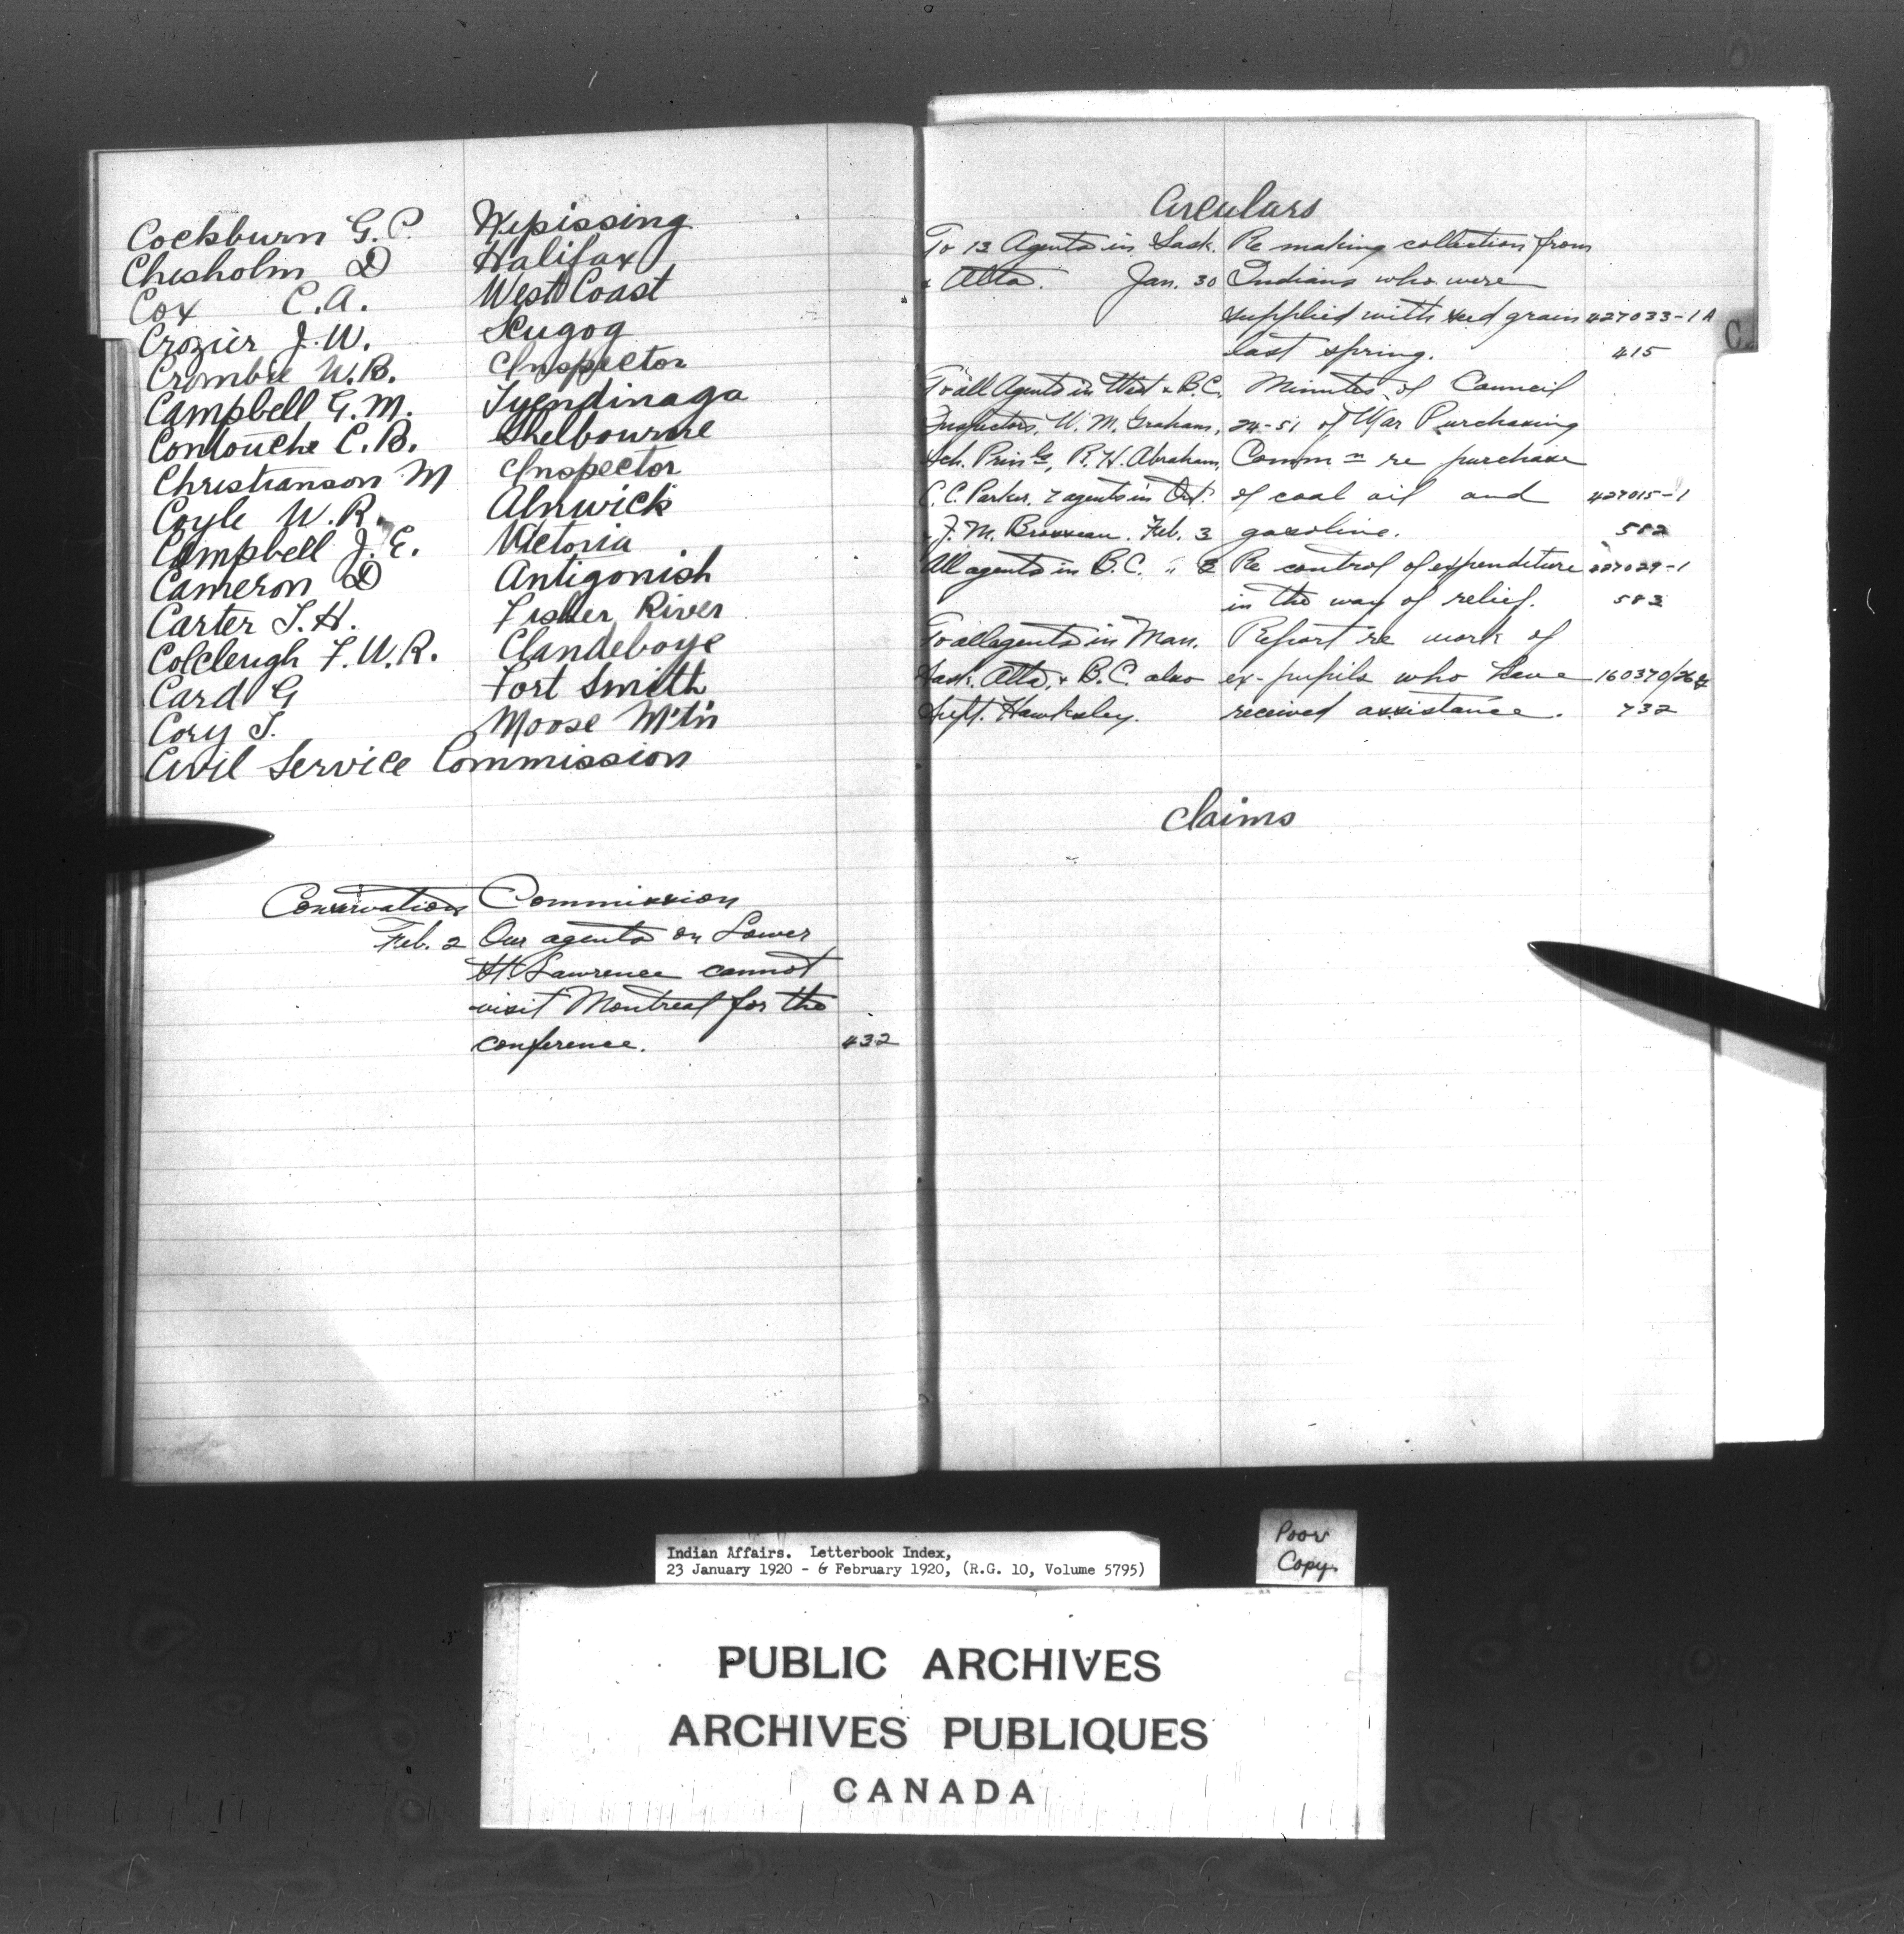 Cockburn G. P. Nipissing
Chisholm D Halifax
Cox C.A. West Coast
Crozier J.W. Scugog
Crombie W.B. Inspector
Campbell G.M. Tyendinaga
Contouche C.B. Shelbourne
Christianson M Inspector
Coyle W.R. Alnwick
Campbell J.E. Victoria
Cameron D Antigonish
Carter T.H. Fisher River
Colcleugh F.W.R. Clandeboye
Card G Fort Smith
Cory T. Moose M't'n
Civil Service Commission
Conservation Commission
Feb. 2 Our agents on Lower
St. Lawrence cannot
visit Montreal for the
conference. 432
Circulars
To 13 Agents in Sask. Re making collection from
& Alta. Jan. 30 Indians who were
supplied with seed grain 427033-1A
last spring. 415
To all Agents in West & B.C. Minutes of Council
Inspectors, W. M. Graham, 24-51 of War Purchasing
Sch. Prin ls, R. H. Abraham, Comm n re purchase
C. C. Parker, 7 agents in Ont. of coal oil and 427015-1
& J. M. Brosseau. Feb. 3 gasoline. 582
All agents in B.C. " 3 Re control of expenditure 427029-1
in the way of relief. 583
To all agents in Man. Report re work of
Sask. Alta. & B.C. also ex-pupils who have 160370/264
Supt. Hawksley. received assistance. 732
C.
Claims
Indian Affairs. Letterbook Index,
23 January 1920 - 6 February 1920, (R.G. 10, Volume 5795)
Poor
Copy
PUBLIC ARCHIVES
ARCHIVES PUBLIQUES
CANADA